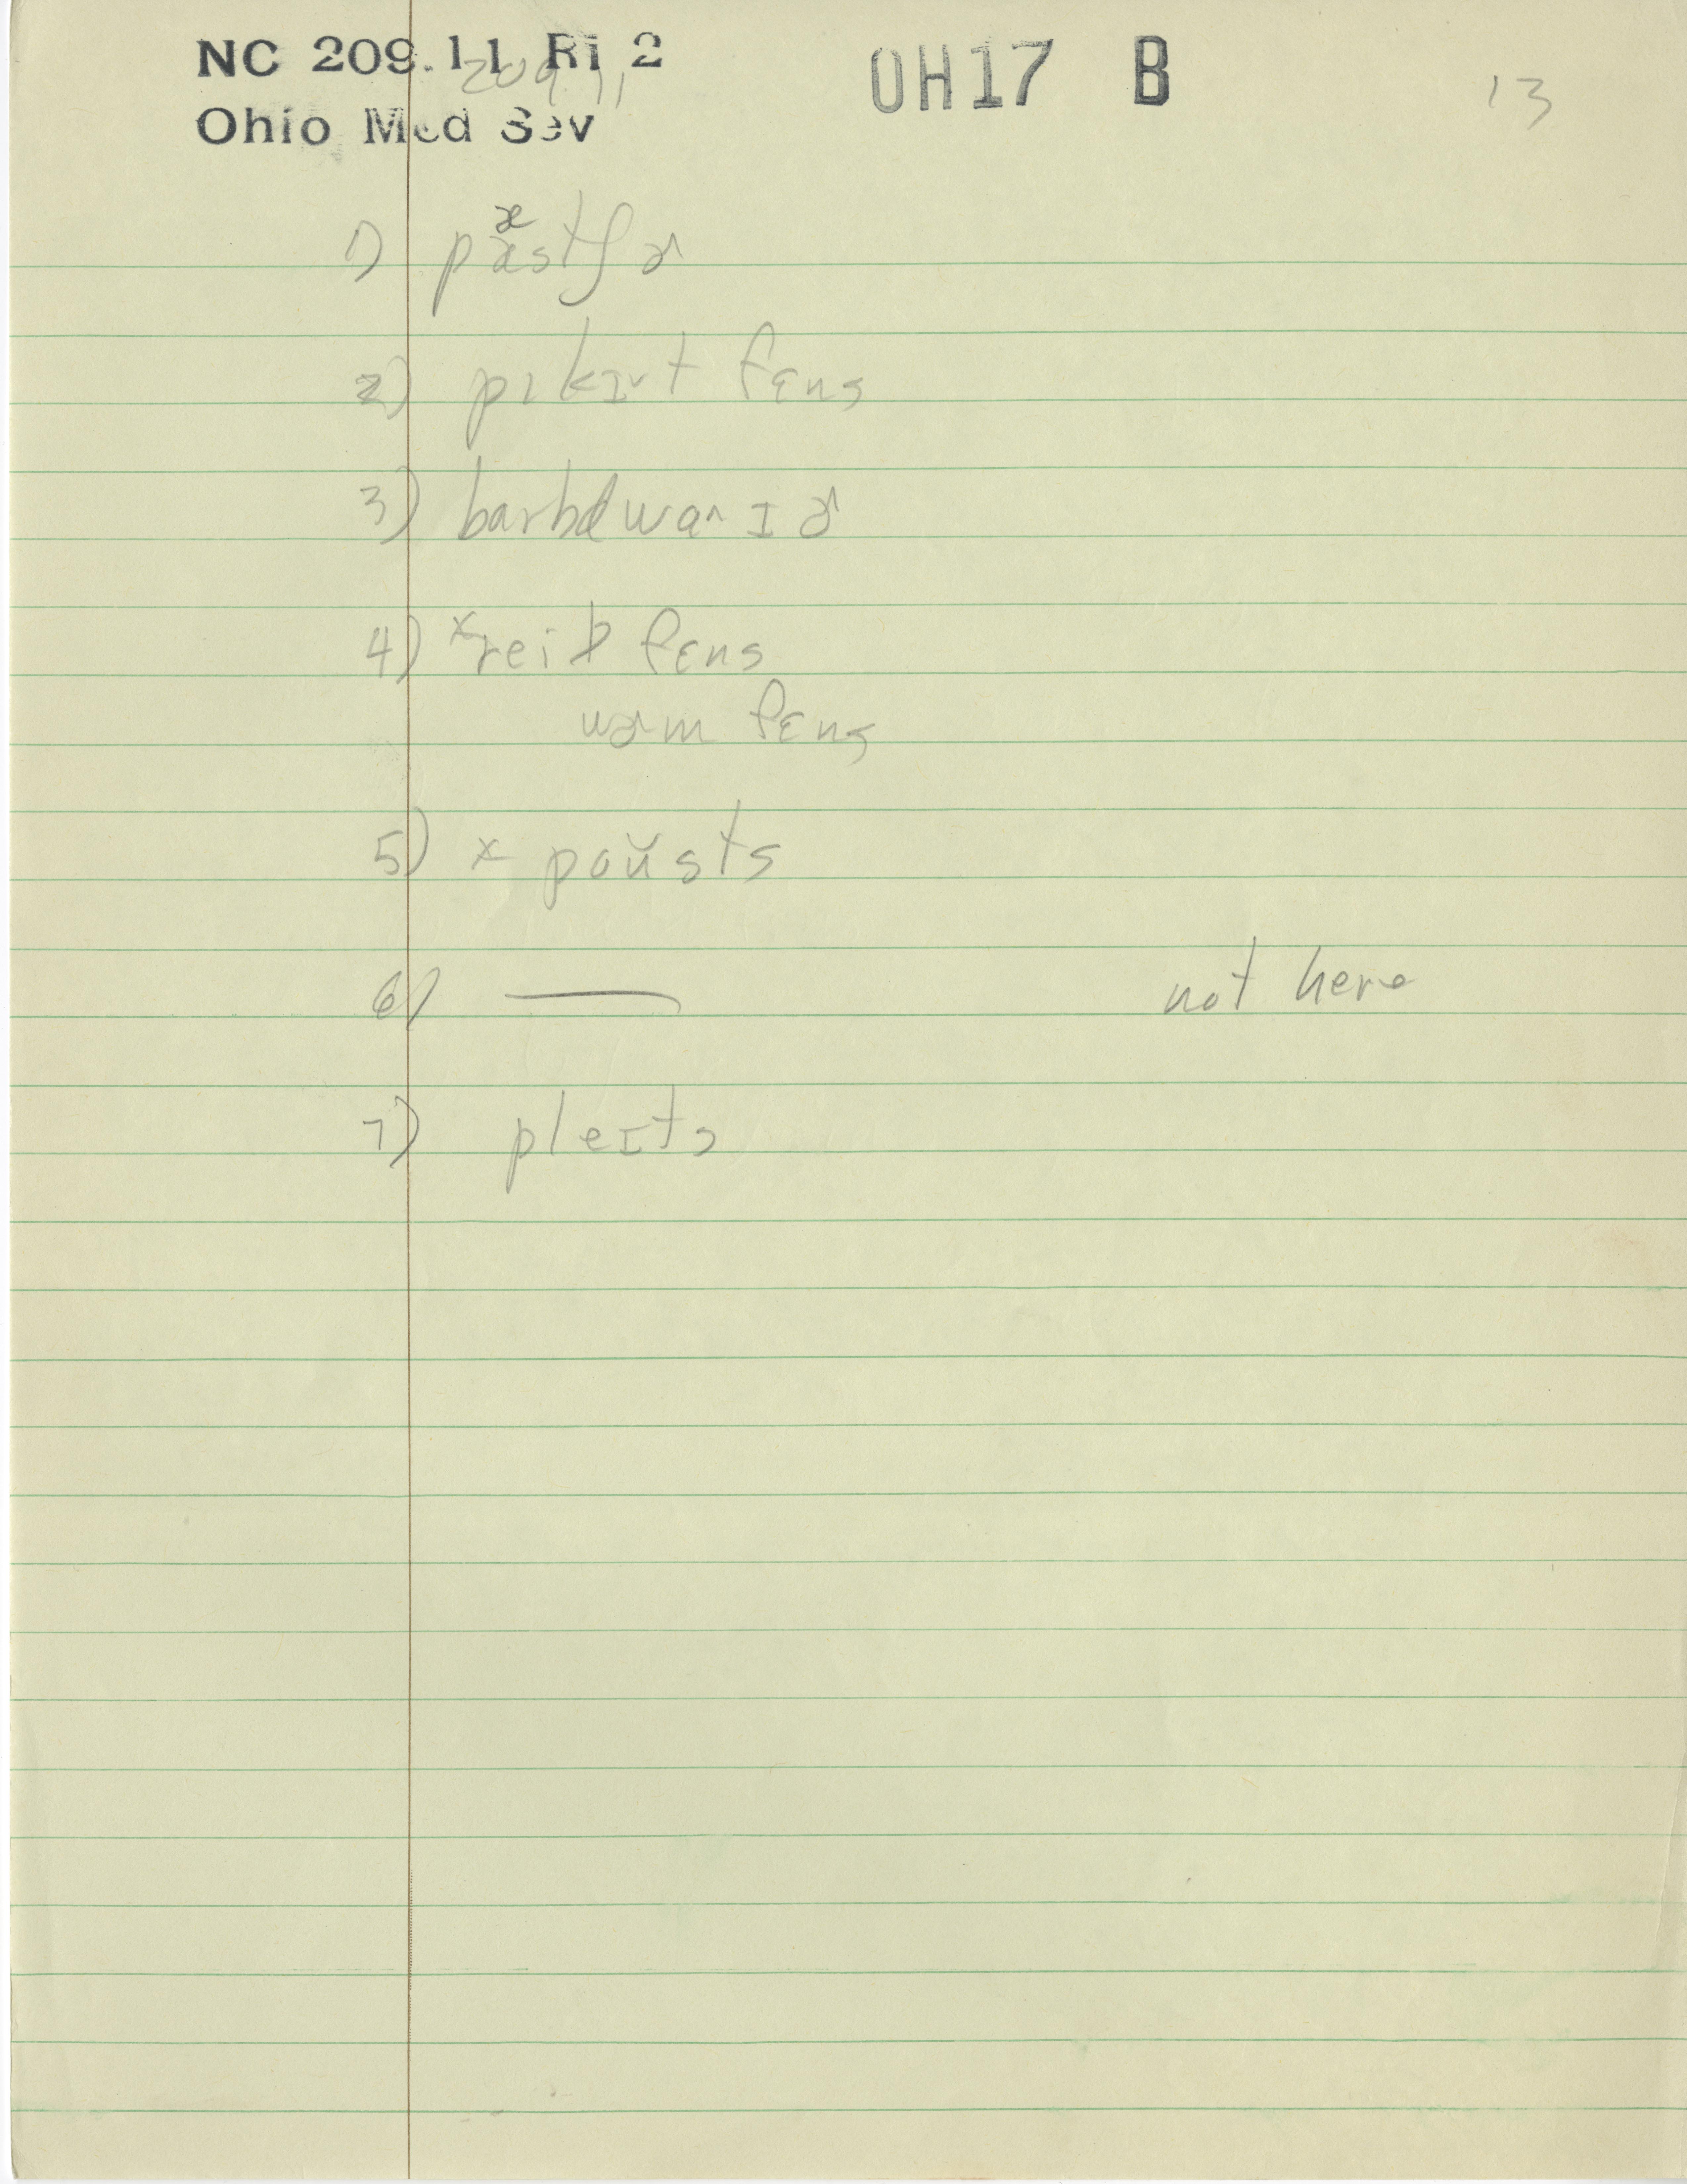 NC 209.11 Ri 2
209.11
OH17 B
13
Ohio Med Sev
1) pæstʃɚ
2) pɪkɪt fɛns
3) barbdwaɪɚ
4) ˣreil fɛns
wɚm fɛns
5) x poŭsts
6) — not here
7) pleɪts